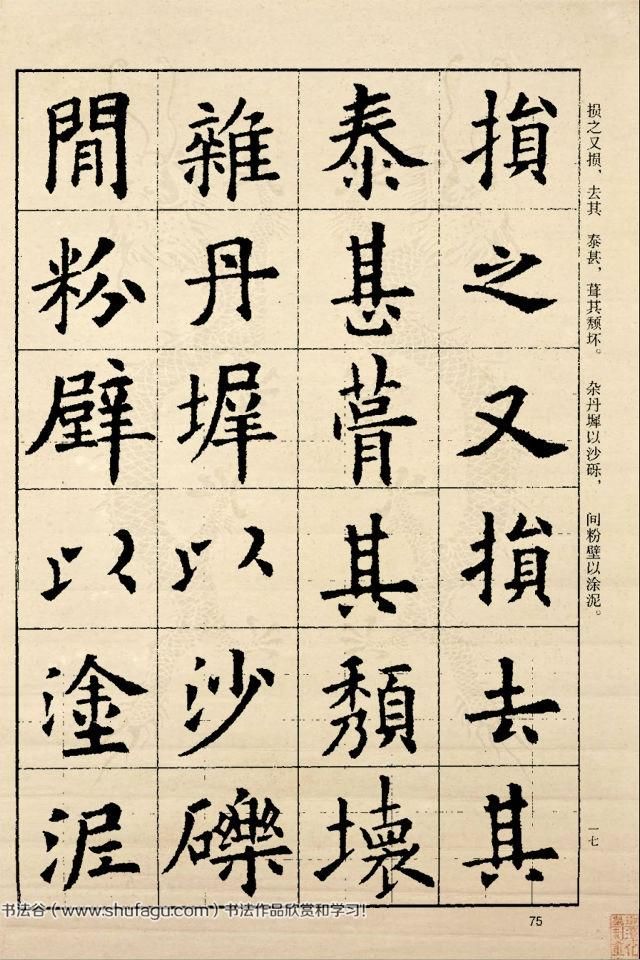 損之又損去其
泰甚葺其頹壞
雜丹墀以沙礫
閒粉壁以塗泥
损之又损、去其 泰甚，葺其颓坏。 杂丹墀以沙砾， 间粉壁以涂泥。
一七
75
书法谷（www.shufagu.com）书法作品欣赏和学习！